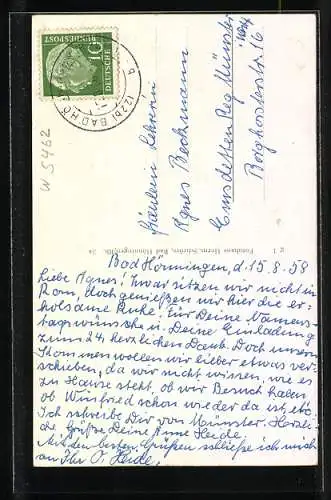 W 5462
DEUTSCHE
BUNDESPOST
10
(22b) BAD HÖ
Fräulein Lehrerin
Agnes Beckmann
Emsdetten Reg. Münster
Borghorsterstr. 16
Bad Hönningen, d. 15.8.58
Liebe Agnes! Zwar sitzen wir nicht in
Rom, doch genießen wir hier die er-
holsame Ruhe! Für Deine Namens-
tagwünsche u. Deine Einladung
zum 24. herzlichen Dank. Doch unser
Kommen wollen wir lieber etwas ver-
schieben, da wir nicht wissen, wie es
zu Hause steht, ob wir Besuch haben,
ob Winfried schon wieder da ist, etc.
Ich schreibe Dir von Münster. Herzli-
che Grüße Deine Änne Heide.
Mit den besten Grüßen schließe ich mich
an Ihr P. Heide.